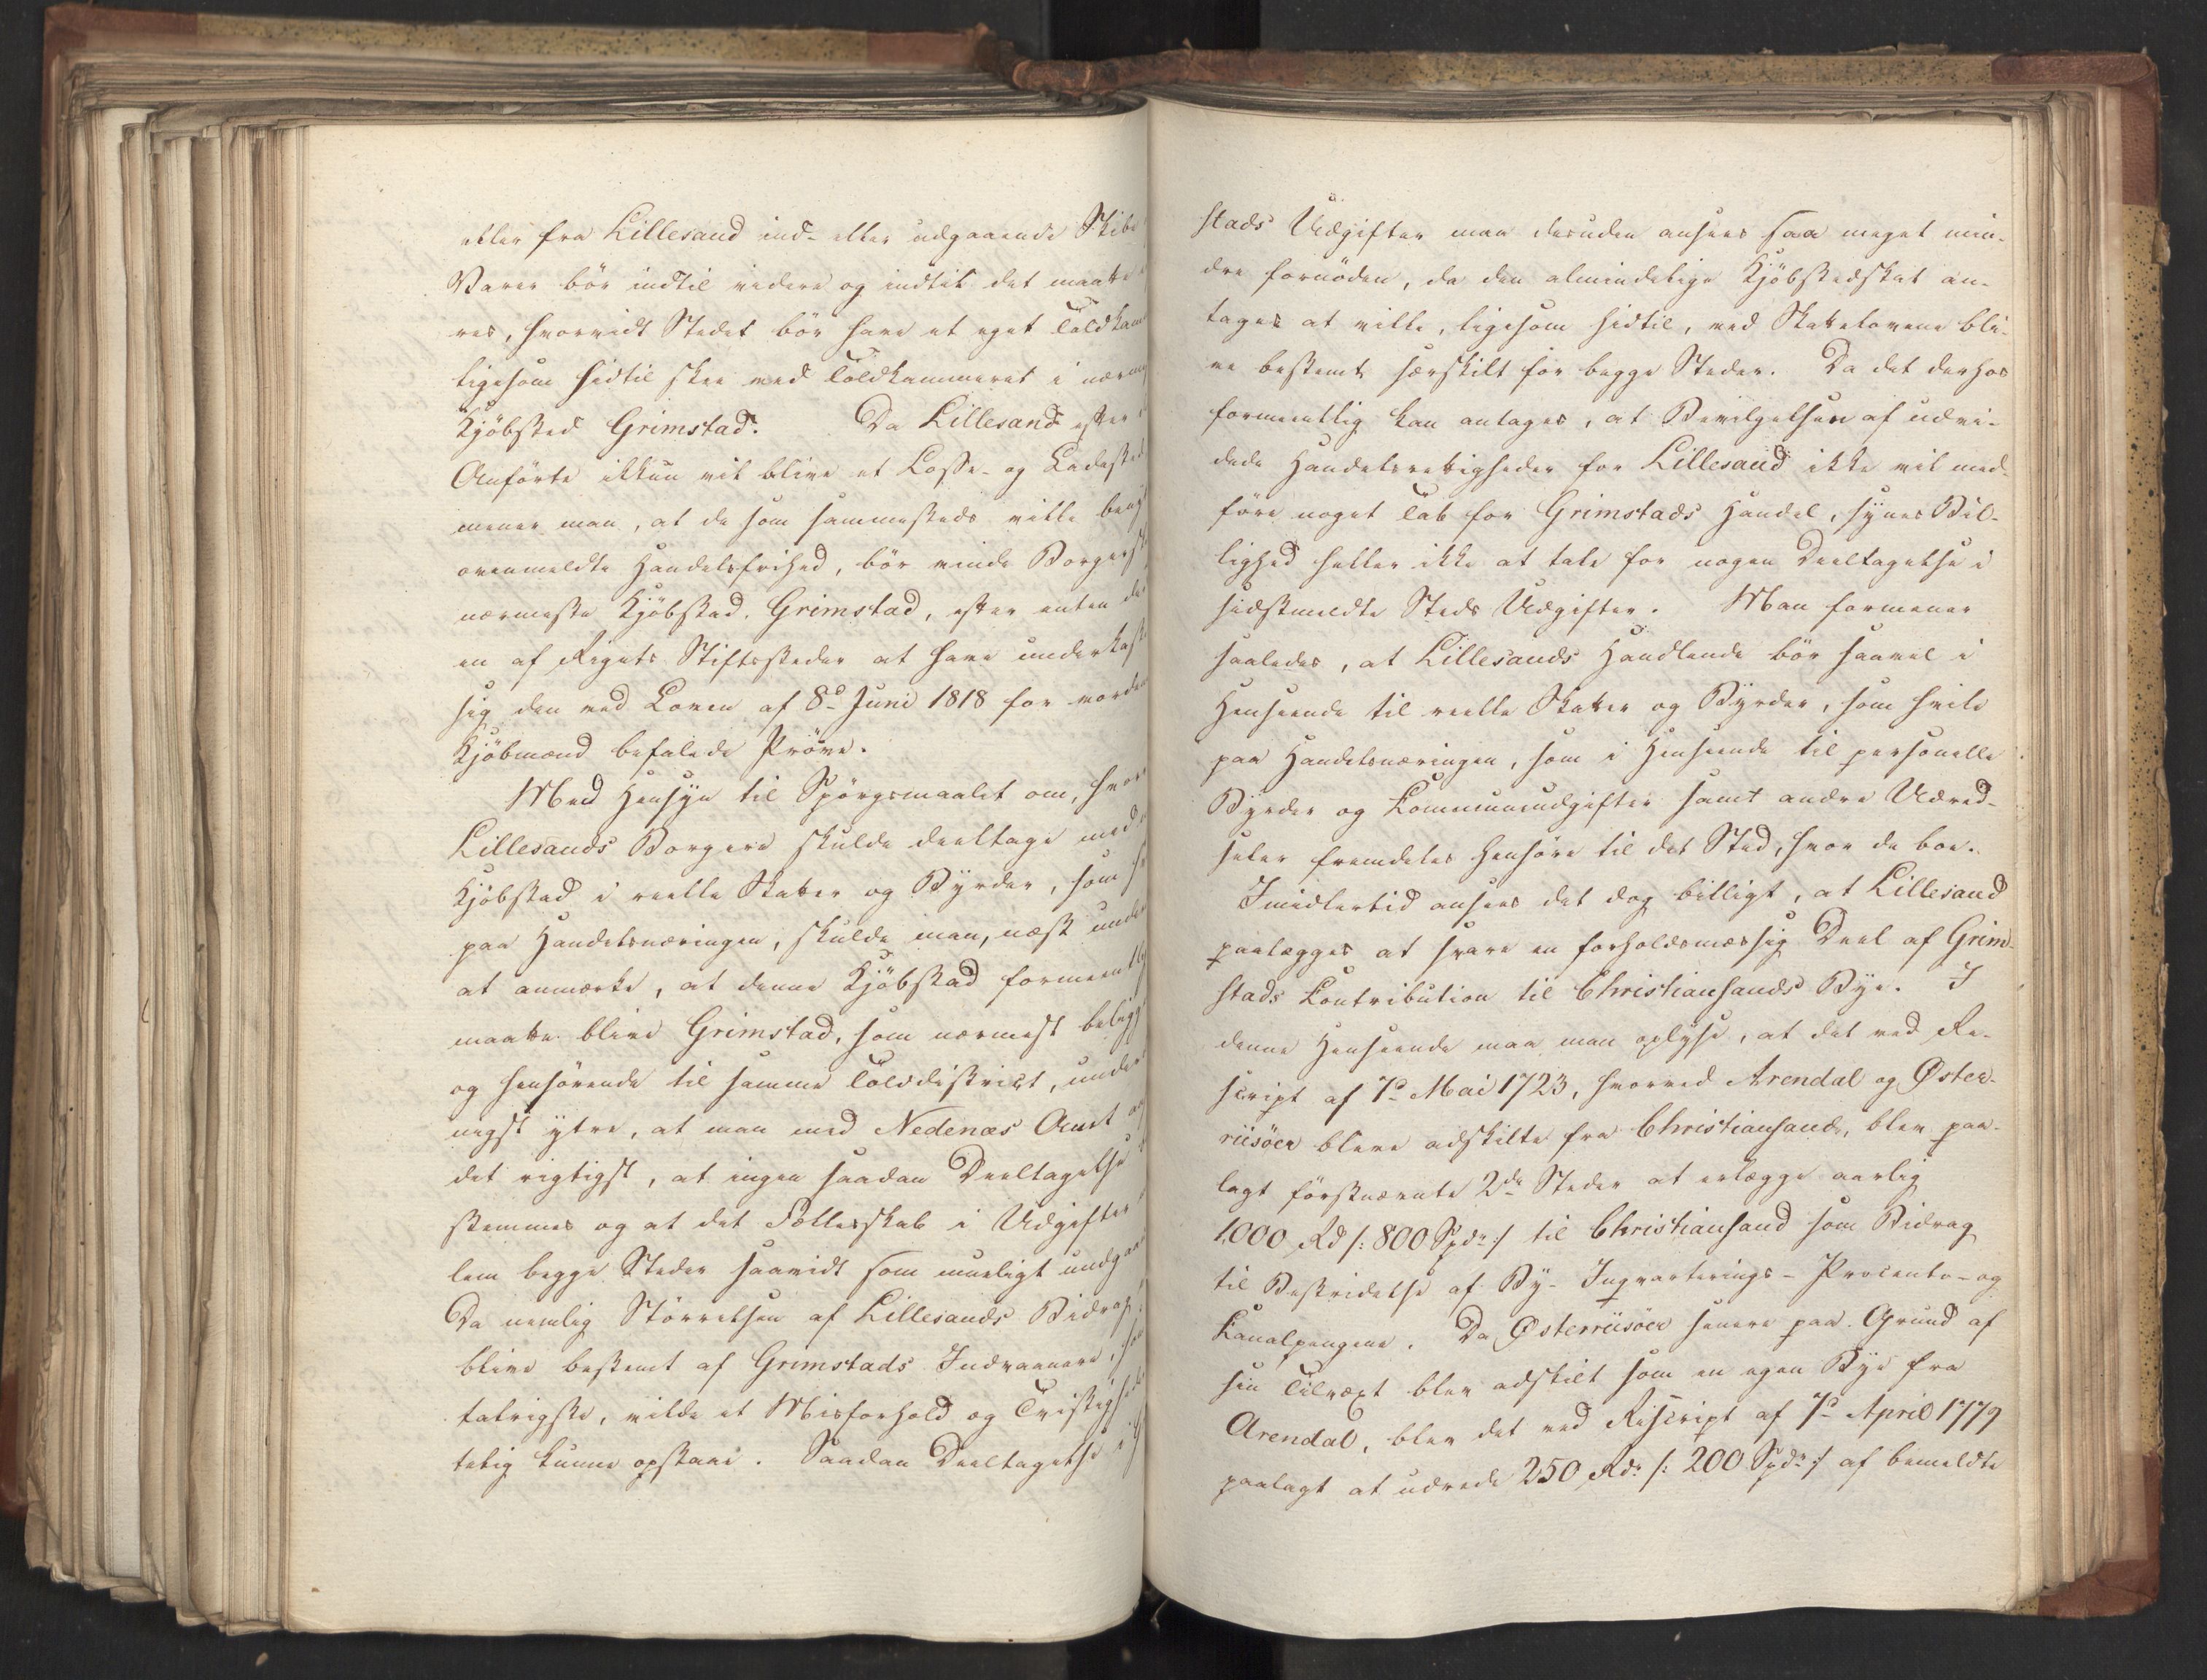 eller fra Lillesand ind- eller udgaaende Skibe
Varer bör indtil videre og indtil det maatte
res, hvorvidt Stedet bör have et eget Toldkam
ligesom hidtil skee ved Toldkammeret i nærme
Kjöbsted Grimstad. Da Lillesand efter
Anförte ikkun vil blive et Losse- og Ladested
mener man, at de som sammesteds ville beny
ovenmeldte Handelsfrihed, bör vinde Borgersk
nærmeste Kjöbstad, Grimstad, efter enten der
en af Rigets Stiftsstæder at have underkast
sig den ved Loven af 8d Juni 1818 for vorden
Kjöbmænd befalede Pröve.
Med Hensyn til Spörgsmaalet om, hvor
Lillesands Borgere skulde deeltage med
Kjöbstad i reelle Skatter og Byrder, som h
paa Handelsnæringen, skulde man, næst under
at anmærke, at denne Kjöbstad formeentlig
maatte blive Grimstad, som nærmest belig
og henhörende til samme Tolddistrict, under
nigst ytre, at man med Nedenæs Amt
det rigtigst, at ingen saadan Deeltagelse
stemmes og at det Fællesskab i Udgifter
lem begge Steder saavidt som mueligt undgaaes
Da nemlig Störrelsen af Lillesands Bidrag
blive bestemt af Grimstads Indvaanere, som
talrigste, vilde et Misforhold og Tvistighed
lelig kunne opstaae. Saadan Deeltagelse i
stads Udgifter maa desuden ansees saa meget min-
dre fornöden, da den almindelige Kjöbstedskat an-
tages at ville, ligesom hidtil, ved Skattelovene bli-
ve bestemt særskilt for begge Steder. Da det derhos
formeentlig kan antages, at Bevilgelsen af udvi-
dede Handelsrettigheder for Lillesand ikke vil med-
före noget Tab for Grimstads Handel, synes Bil-
lighed heller ikke at tale for nogen Deeltagelse i
sidstmeldte Steds Udgifter. Man formener
saaledes, at Lillesands Handlende bör saavel i
Henseende til reelle Skatter og Byrder, som hvile
paa Handelsnæringen, som i Henseende til personelle
Byrder og Kommuneudgifter samt andre Udred-
seler fremdeles henhöre til det Sted, hvor de boe.
Imidlertid ansees det dog billigt, at Lillesand
paalægges at svare en forholdsmæssig Deel af Grim-
stads Contribution til Christiansands Bye. I
denne Henseende maa man oplyse, at det ved Re-
script af 7d Mai 1723, hvorved Arendal og Øster-
riisöer bleve adskilte fra Christiansand, blev paa-
lagt förstnævnte 2de Steder at erlægge aarlig
1000 Rd /: 800 Spdr :/ til Christiansand som Bidrag
til Bestridelse af By- Inqvarterings- Procento- og
Kanalpengene. Da Østerriisöer senere paa Grund af
sin Tilvæxt blev adskilt som en egen Bye fra
Arendal, blev det ved Rescript af 7d April 1779
paalagt at udrede 250 Rdr /: 200 Spdr :/ af bemeldte